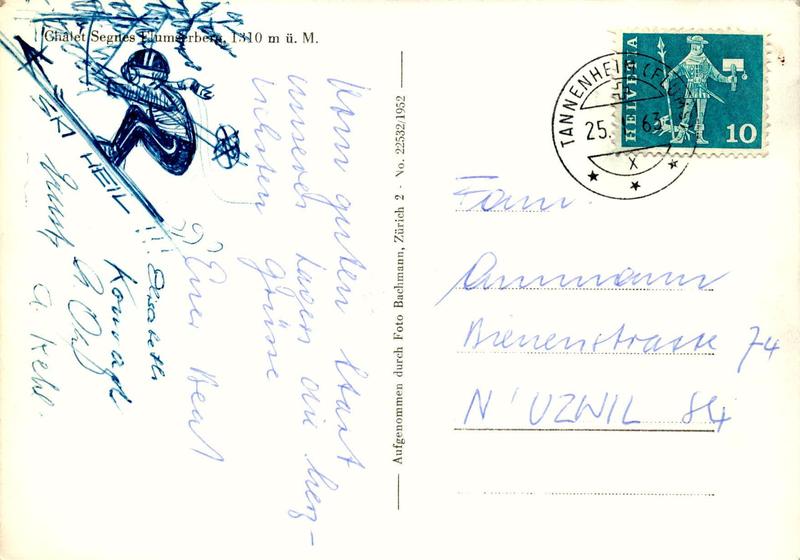 Chalet Segnes Flumserberg, 1310 m ü. M.
SKI HEIL
!!!
Vom guten Start
unseres Lagers die herz-
lichsten Grüsse
Euer Beat
Elisabeth
Konrad
Aufgenommen durch Foto Bachmann, Zürich 2 - No. 22532/1952
HELVETIA
10
TANNENHEIM (FLUMS)
25. 63
X
Fam.
Ammann
Bienenstrasse 74
N'UZWIL SG